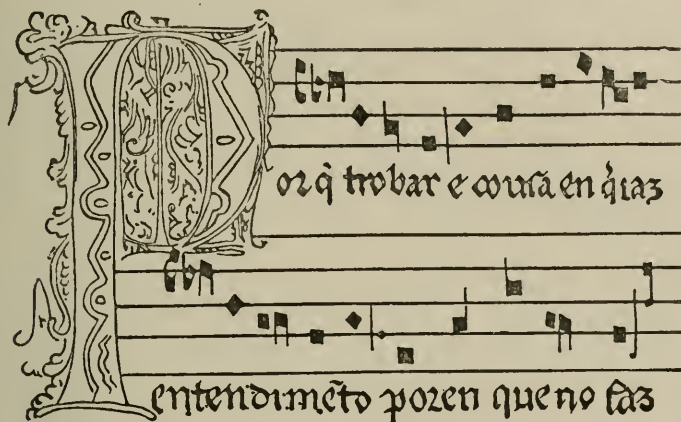 Porq̇ trobar e cousa en q̇ iaz
entendimẽto poren que no faz